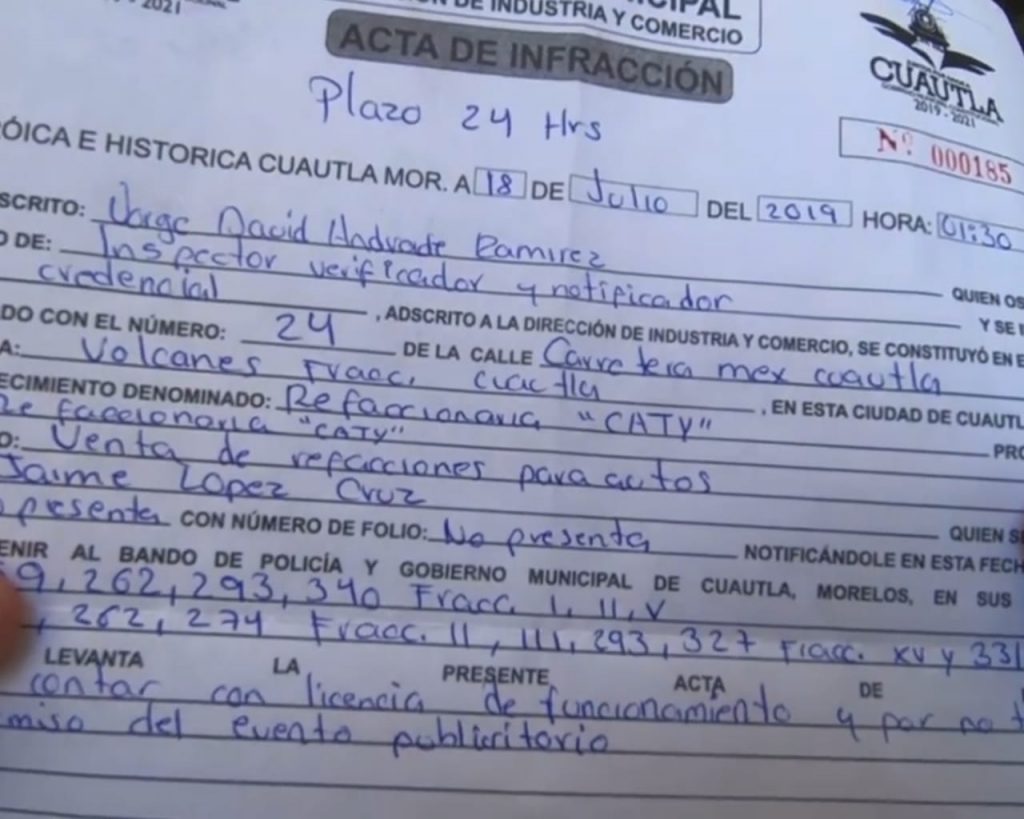 2021
CIPAL
DE INDUSTRIA Y COMERCIO
ACTA DE INFRACCIÓN
CUAUTLA
2019 - 2021
Plazo 24 Hrs
Nº 000185
ÓICA E HISTORICA CUAUTLA MOR. A 18 DE Julio DEL 2019 HORA: 01:30
SCRITO: Jorge David Andrade Ramirez
O DE: Inspector verificador y notificador QUIEN OS
credencial Y SE
, ADSCRITO A LA DIRECCIÓN DE INDUSTRIA Y COMERCIO, SE CONSTITUYÓ EN E
DO CON EL NÚMERO: 24 DE LA CALLE Carretera mex cuautla
A: Volcanes Fracc. cuactla , EN ESTA CIUDAD DE CUAUTL
ECIMIENTO DENOMINADO: Refaccionaria "CATY"
Refaccionaria "CATY" PRO
O: Venta de refacciones para autos
Jaime Lopez Cruz QUIEN S
presenta CON NÚMERO DE FOLIO: No presenta NOTIFICÁNDOLE EN ESTA FECH
ENIR AL BANDO DE POLICÍA Y GOBIERNO MUNICIPAL DE CUAUTLA, MORELOS, EN SUS
9, 262, 293, 340 Fracc. I, II, V
, 262, 274 Fracc. II, III, 293, 327 Fracc. XV y 331
LEVANTA LA PRESENTE ACTA DE
contar con licencia de funcionamiento y por no t
miso del evento publicitorio